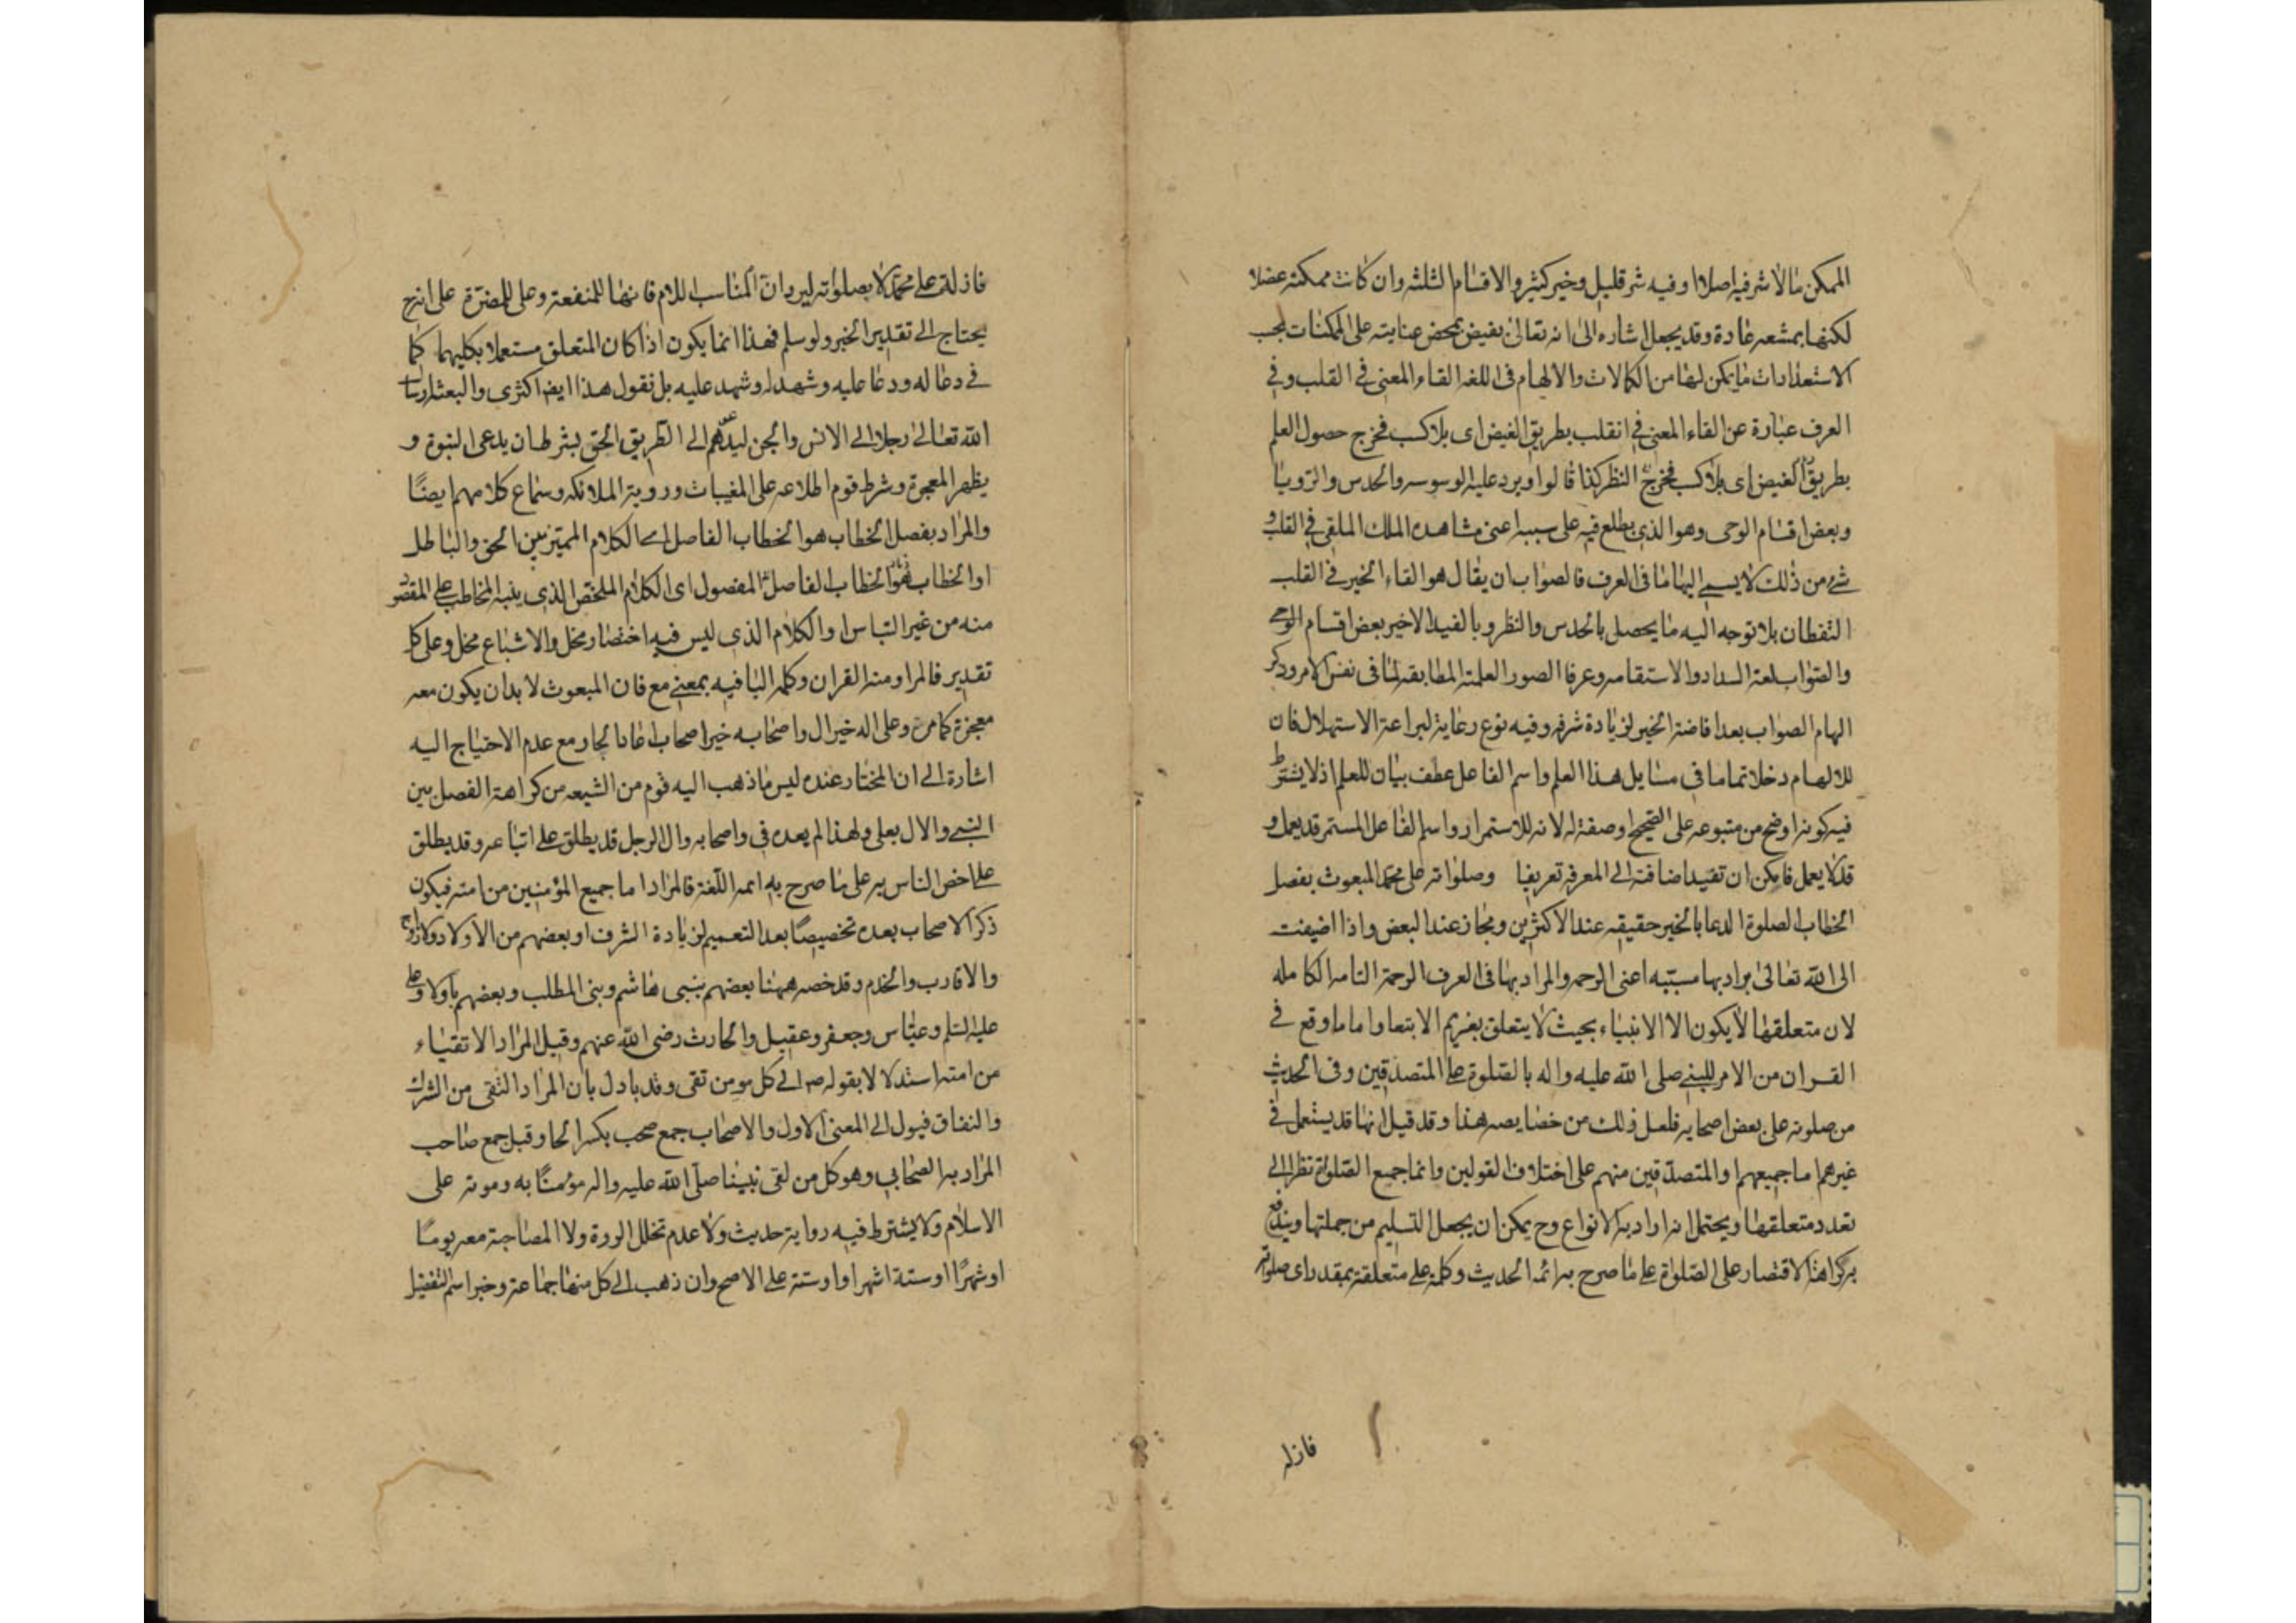 الممكن مالا شر فيه اصلا او فيه شر قليل وخير كثير والاقسام الثلثه وان كانت ممكنة عقلا
لكنها ممتنعه عادة وقد يجعل اشاره الى انه تعالى يفيض بمحض عنايته على الممكنات بحسب
الاستعدادات ما يمكن لها من الكمالات والالهام فى اللغه القاء المعنى فى القلب وفى
العرف عبارة عن القاء المعنى فى القلب بطريق الفيض اى بلا كسب فخرج حصول العلم
بطريق الفيض اى بلا كسب فخرج النظر كذا قالوا ويرد عليه الوسوسه والحدس والرويا
وبعض اقسام الوحى وهو الذى يطلع فيه على سببه اعنى مشاهده الملك الملقى فى القلب و
شئ من ذلك لا يسمى الهاما فى العرف فالصواب ان يقال هو القاء الخير فى القلب
التفطان بلا توجه اليه ما يحصل بالحدس والنظر وبالقيد الاخير بعض اقسام الوحى
والصواب لغة السداد والاستقامه وعرفا الصور العلمة المطابقه لما فى نفس الامر وذكر
الهام الصواب بعد افاضة الخير لزيادة شرفه وفيه نوع رعاية لبراعة الاستهلال فان
للالهام دخلا تماما فى مسايل هذا العلم واسم الفاعل عطف بيان للعلم اذ لا يشترط
فيه كونه اوضح من متبوعه على الصحيح او صفة له لانه للاستمرار واسم الفاعل المستمر قد يعمل و
قد لا يعمل فامكن ان تفيد اضافته الى المعرفه تعريفا وصلواته على محمد المبعوث بفصل
الخطاب الصلوة الدعا بالخير حقيقه عند الاكثرين ومجاز عند البعض واذا اضيفت
الى الله تعالى يراد بها مسببه اعنى الرحمه والمراد بها فى العرف الرحمة التامه الكامله
لان متعلقها لا يكون الا الانبياء بحيث لا يتعلق بغيرهم الا بتعا واما ما وقع فى
القران من الامر للنبى صلى الله عليه واله بالصلوة على المتصدقين وفى الحديث
من صلوته على بعض اصحابه فلعل ذلك من خصايصه هذا وقد قيل انها قد يستعمل فى
غيرهم اما جميعهم او المتصدقين منهم على اختلاف القولين وانما جمع الصلوة نظرا الى
تعدد متعلقها ويحتمل انه اراد به الانواع وح يمكن ان يجعل التسليم من جملتها ويندفع
به كراهة الاقتصار على الصلوة على ما صرح به ائمه الحديث وكلمة على متعلقة بمقدر اى صلواته
فازلة
فازلة على محمد لا بصلواته ليرد ان المناسب اللام فانها للمنفعة وعلى للمضرة على انه ح
يحتاج الى تقدير الخبر ولو سلم فهذا انما يكون اذا كان المتعلق مستعملا بكليهما كما
فى دعا له ودعا عليه وشهد له وشهد عليه بل نقول هذا ايض اكثرى والبعثة ارسال
الله تعالى رجلا الى الانس والجن ليدعوهم الى الطريق الحق بشرط ان يدعى النبوة و
يظهر المعجزة وشرط قوم اطلاعه على المغيبات وروية الملائكه وسماع كلامهم ايضا
والمراد بفصل الخطاب هو الخطاب الفاصل اى الكلام المميز بين الحق والباطل
او الخطاب فهو الخطاب الفاصل المفصول اى الكلام الملخص الذى ينبه المخاطب على المقصود
منه من غير التباس او الكلام الذى ليس فيه اختصار مخل والاشباع مخل وعلى كل
تقدير فالمراد منه القران وكلمه البا فيه بمعنى مع فان المبعوث لا بد ان يكون معه
معجزة كما مر وعلى اله خير ال واصحابه خير اصحاب اعاد الجار مع عدم الاحتياج اليه
اشارة الى ان المختار عنده ليس ما ذهب اليه قوم من الشيعه من كراهة الفصل بين
النبى والال بعلى ولهذا لم يعده فى واصحابه وال الرجل قد يطلق على اتباعه وقد يطلق
على اخص الناس به على ما صرح به ائمه اللغة فالمراد اما جميع المؤمنين من امته فيكون
ذكر الاصحاب بعده تخصيصا بعد التعميم لزيادة الشرف او بعضهم من الاولاد والازواج
والاقارب والخدم وقد خصه ههنا بعضهم ببنى هاشم وبنى المطلب وبعضهم باولاد على
عليه السلم وعباس وجعفر وعقيل والحارث رضى الله عنهم وقيل المراد الاتقياء
من امته استدلالا بقوله ص الى كل مومن تقى وقد يادل بان المراد التقى من الشرك
والنفاق فيول الى المعنى الاول والاصحاب جمع صحب بكسر الحا وقيل جمع صاحب
المراد به الصحابى وهو كل من لقى نبينا صلى الله عليه واله مؤمنا به وموته على
الاسلام ولا يشترط فيه رواية حديث ولا عدم تخلل الردة ولا المصاحبة معه يوما
او شهرا او ستة اشهر او او سنة على الاصح وان ذهب الى كل منها جماعة وخير اسم التفضيل